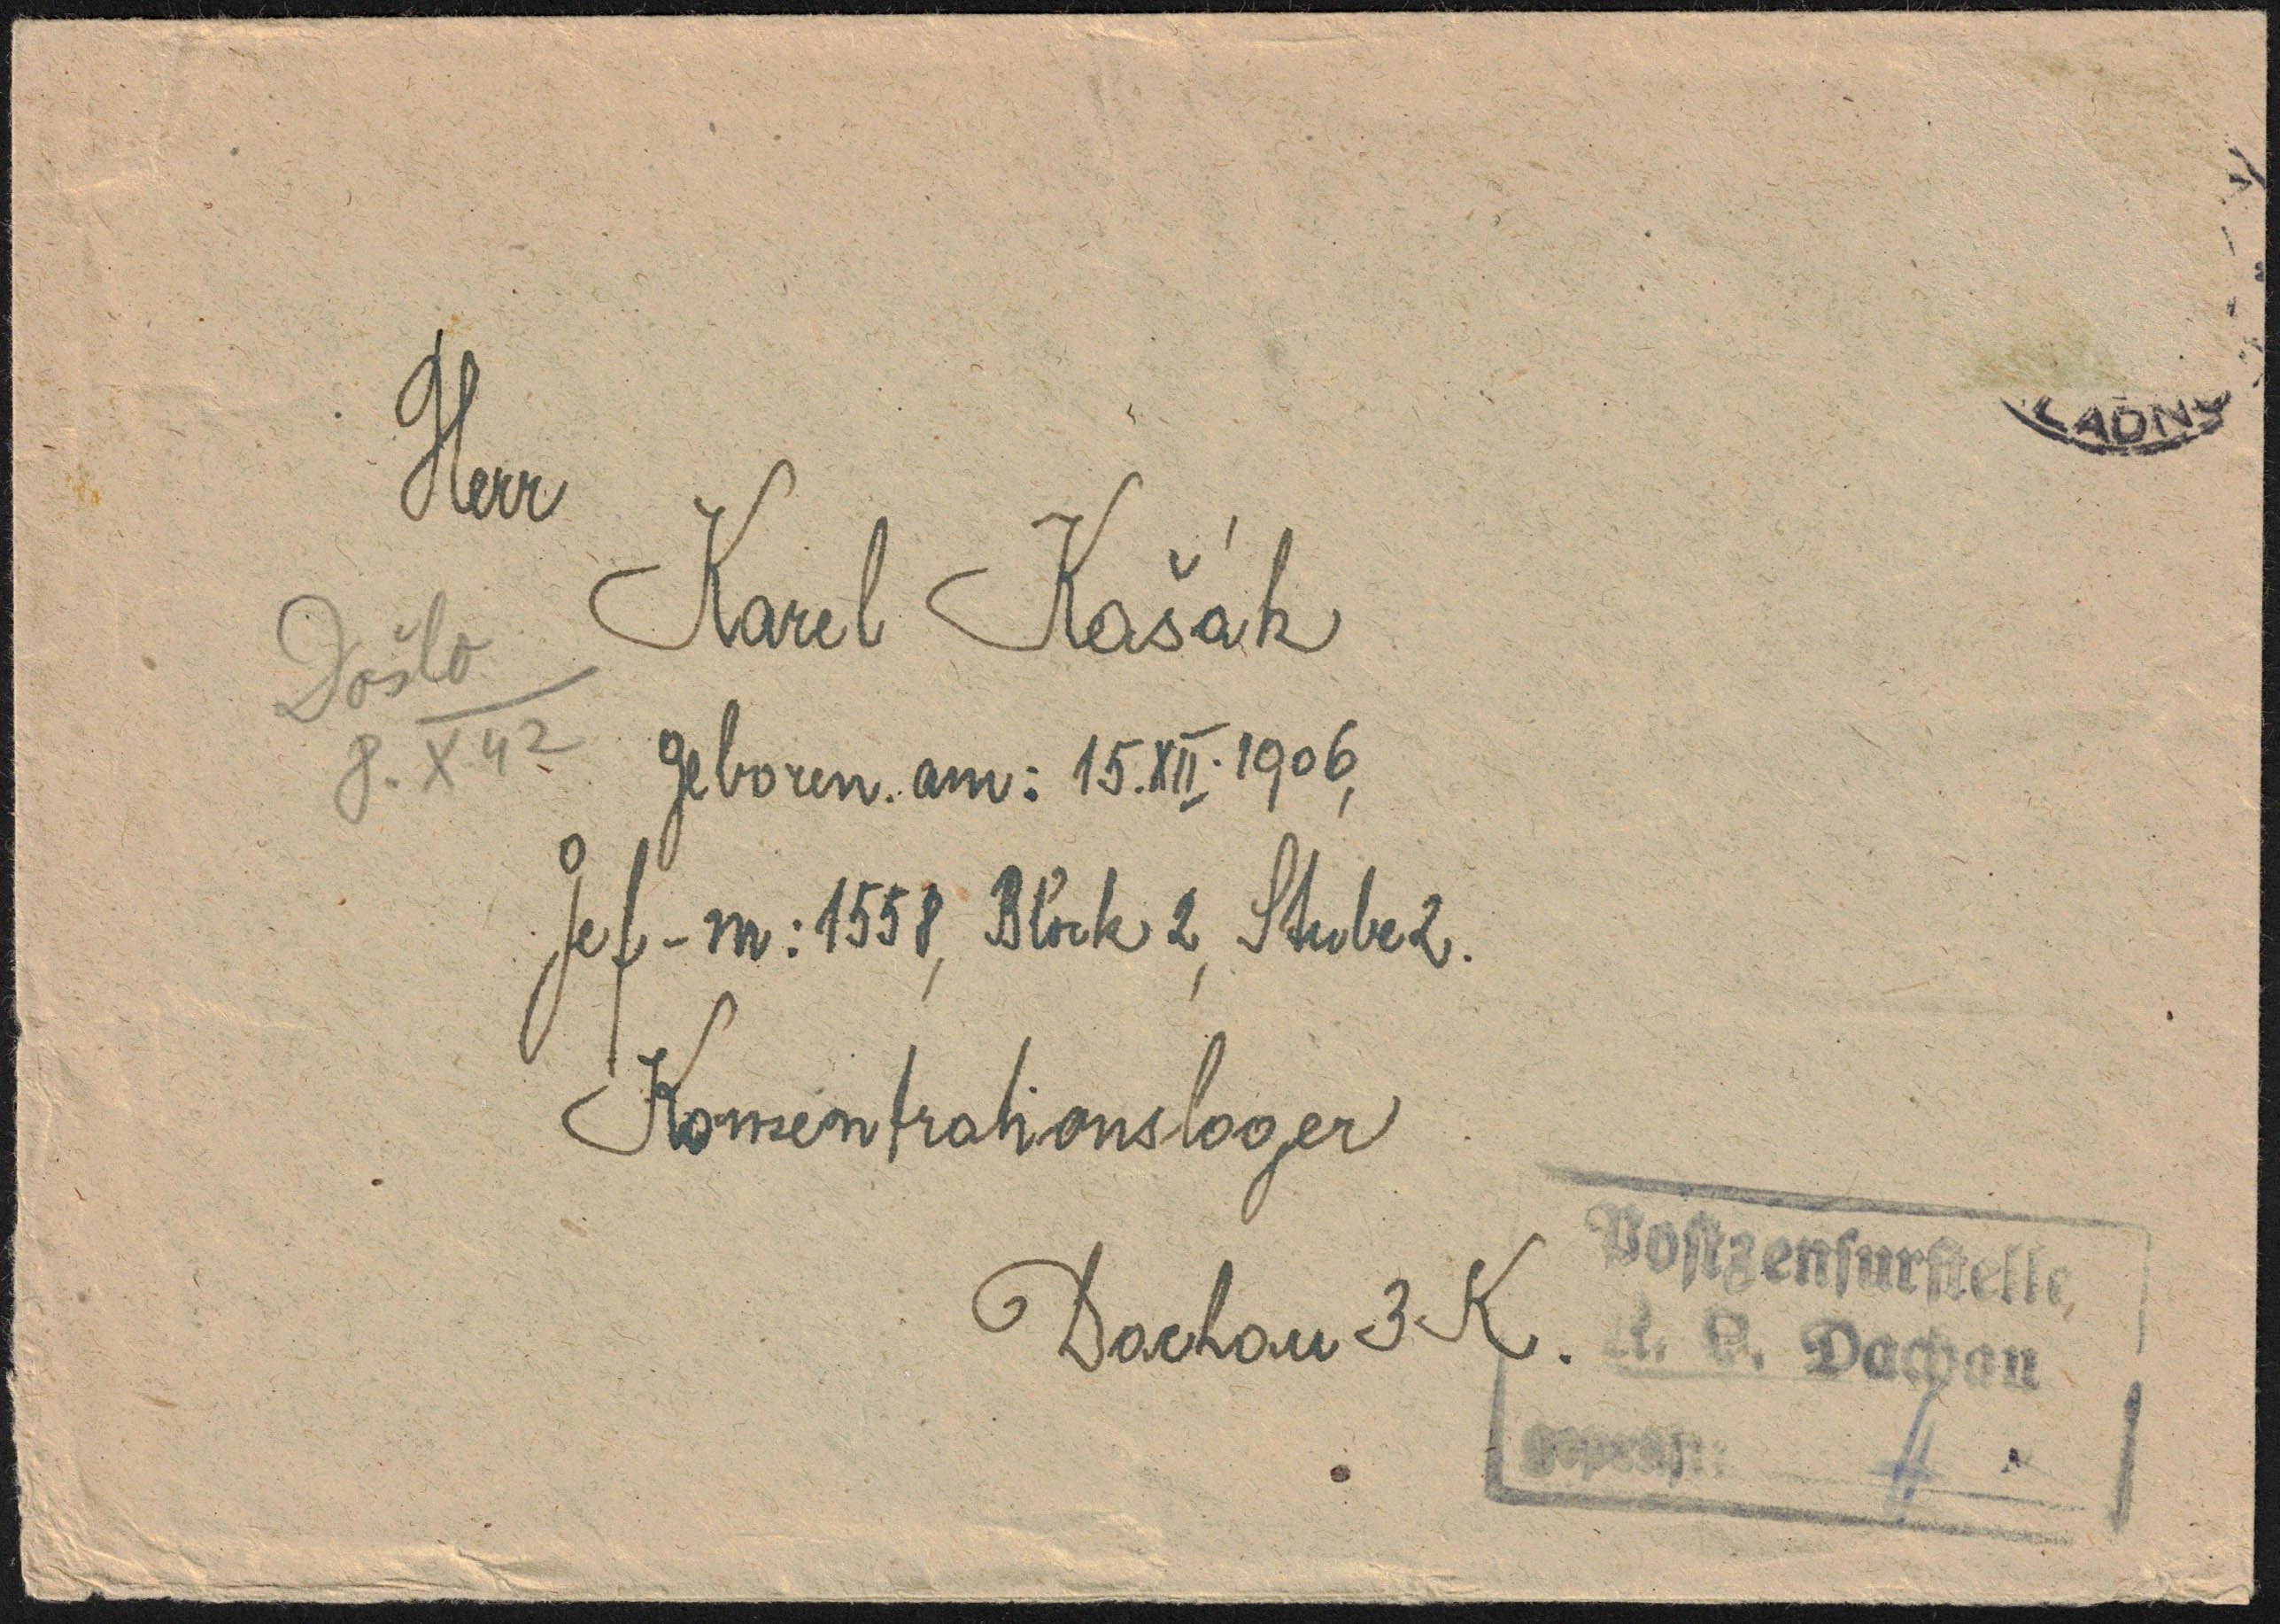 LADN
Herr
Karel Kašák
Došlo
8. X. 42
geboren am: 15. XII. 1906,
Gef-nr: 1558, Block 2, Stube 2.
Konzentrationslager
Dachau 3 K.
Postzensurstelle
K. L. Dachau
geprüft: